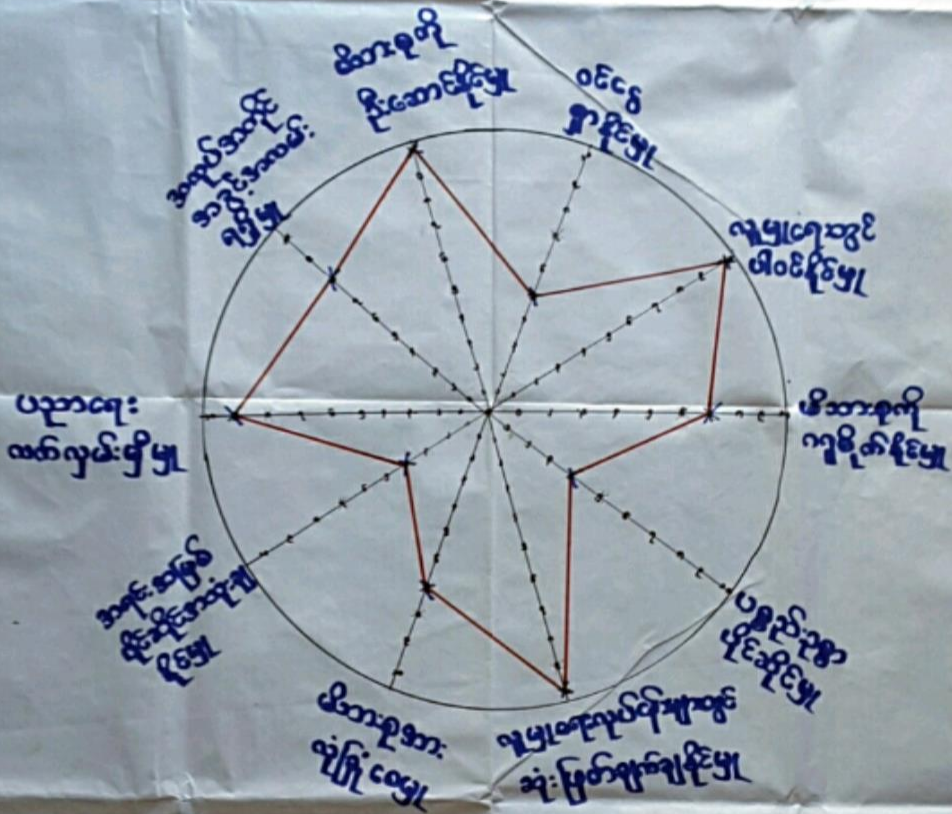 မိသားစုကို
ဦးဆောင်နိုင်မှု
ဝင်ငွေ
ရှာနိုင်မှု
လူမှုရေးတွင်
ပါဝင်နိုင်မှု
မိသားစုကို
ဂရုစိုက်နိုင်မှု
ပစ္စည်းဥစ္စာ
ပိုင်ဆိုင်မှု
လူမှုရေးလုပ်ငန်းများတွင်
ဆုံးဖြတ်ချက်ချနိုင်မှု
မိသားစုအား
လုံခြုံစေမှု
အရင်းအမြစ်
ပိုင်ဆိုင်အသုံးချ
ပညာရေး
လက်လှမ်းမှီမှု
အလုပ်အကိုင်
အခွင့်အလမ်း
ရရှိမှု